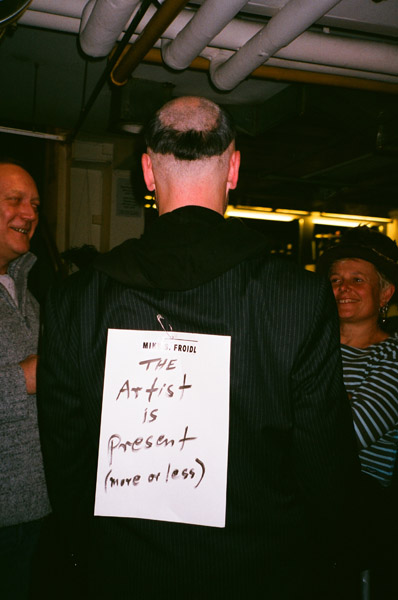 FROIDL
THE
Artist
is
present
(more or less)